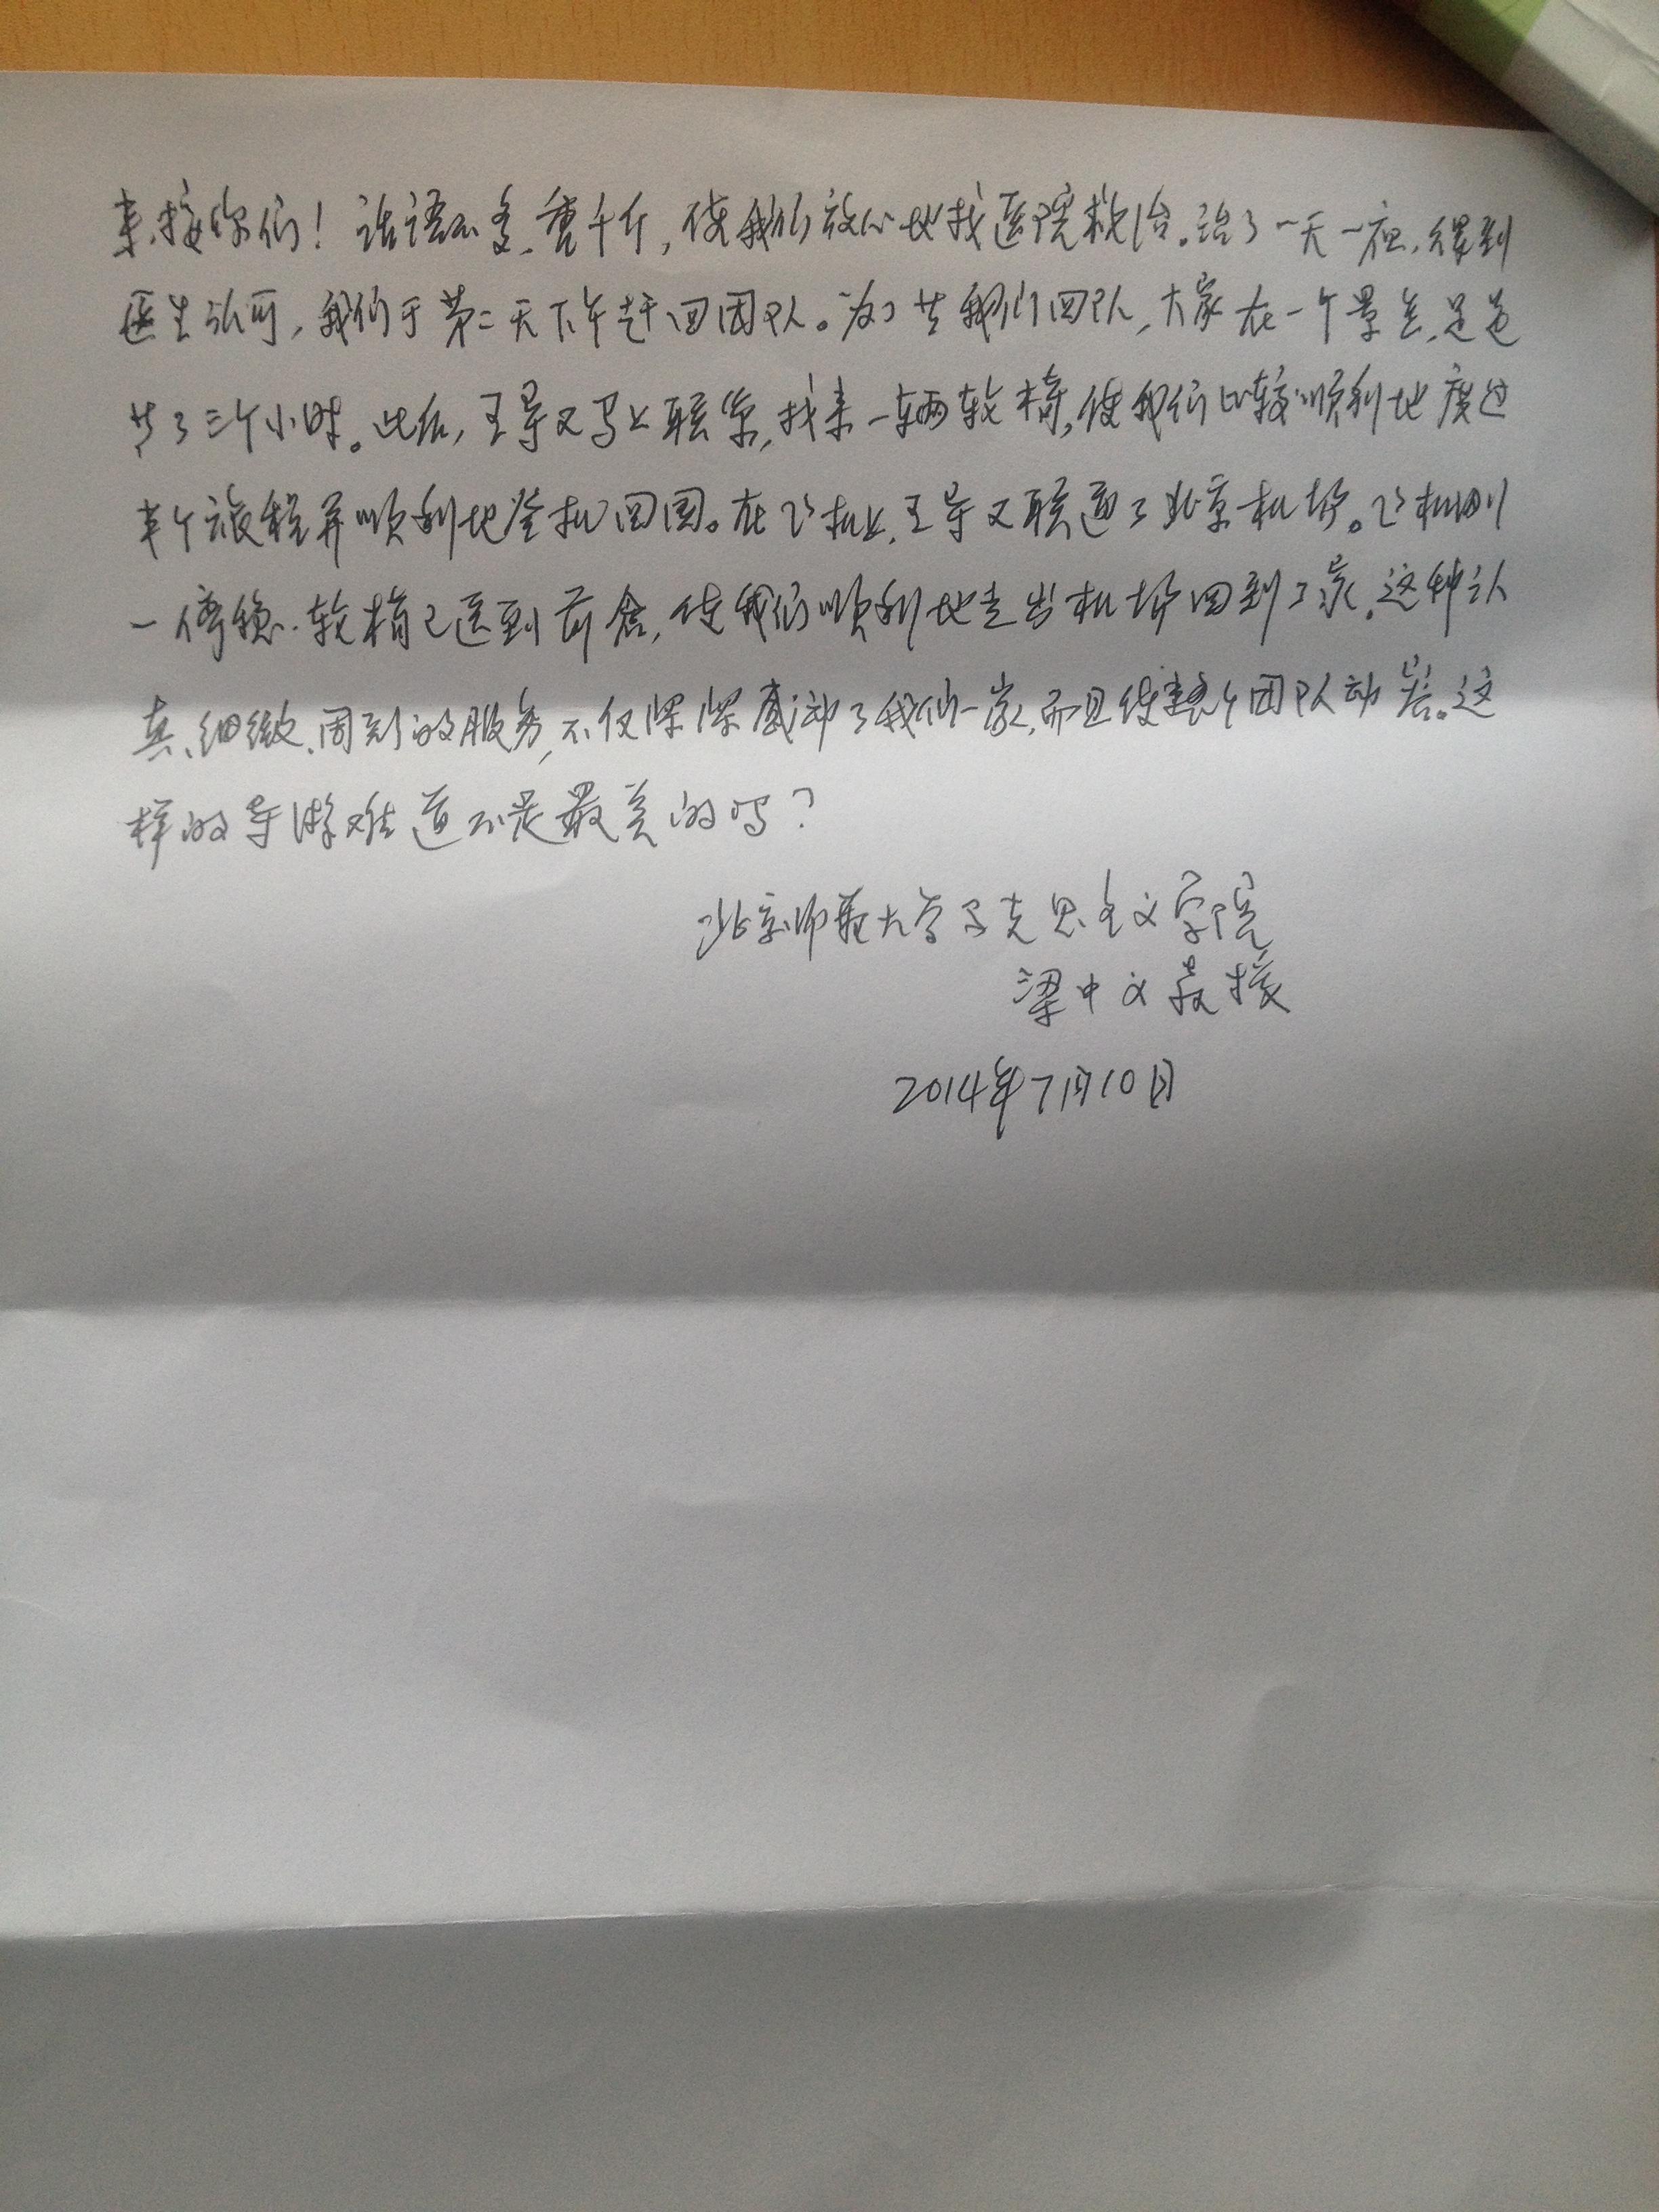 来接你们！话语不多，重千斤，使我们放心地找医院救治。治了一天一夜，得到
医生认可，我们于第二天下午赶回团队。为了等我们回队，大家在一个景点，足足
等了三个小时。此后，王导又马上联系，找来一辆轮椅，使我们比较顺利地度过
半个旅程并顺利地登机回国。在飞机上，王导又联通了北京机场。飞机刚
一停稳，轮椅已送到前舱，使我们顺利地走出机场回到了家。这种认
真、细微、周到的服务，不仅深深感动了我们一家，而且使整个团队动容。这
样的导游难道不是最美的吗？
北京师范大学马克思主义学院
梁中义教授
2014年7月10日